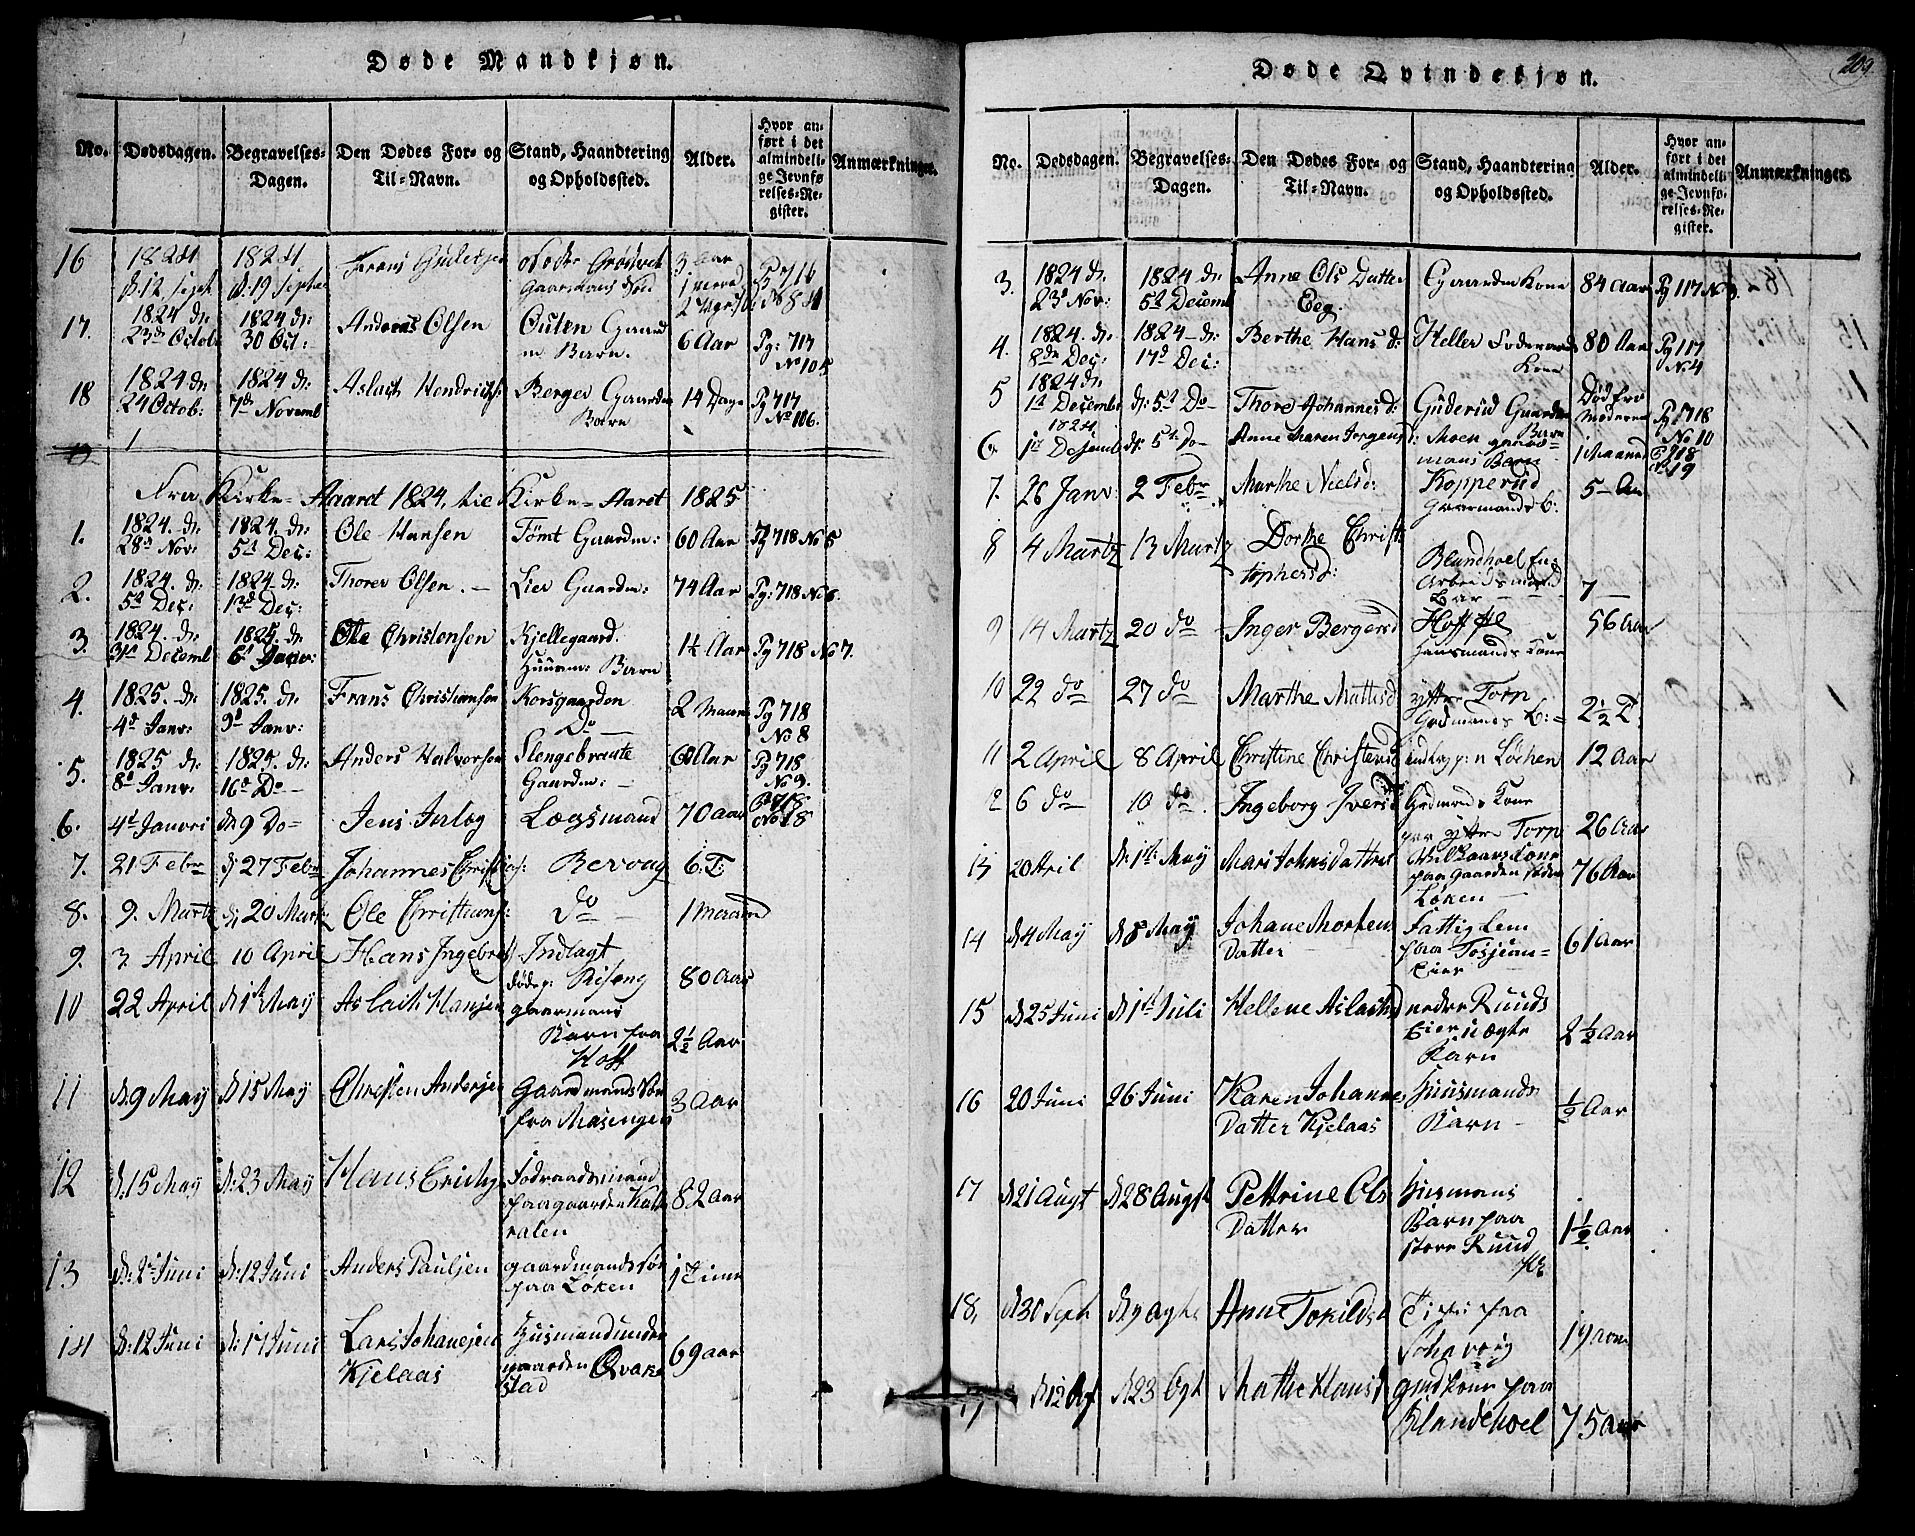 Døde Mandkjøn.
No. Dødsdagen. Begravelses-Dagen. Den Dødes For- og Til-Navn. Stand, Haandtering og Opholdssted. Alder. Hvor anført i det almindelige Jevnførelses-Register. Anmærkninger.
16 1824 d. 12 Sept. 1824 d. 19 Septbr Gaarmans 3 Aar
17. 1824 dn 23dn Octob 1824 dn: 30 Oct: Andreas Olsen Outen Gaardm Barn. 6 Aar Pg: 717 No 105
18 1824 dn 24 Octob: 1824 dn 7dn Novemb Aslach Hendrichs: Berger Gaardm Barn 14 Dage Pg 717 No 106.
19
Fra Kirke-Aaret 1824, til Kirke-Aaret 1825
1. 1824. dn 28dn Nov: 1824. dn: 5t Dec: Ole Hansen Tömt Gaardm: 60 Aar Pg 718 No 5
2. 1824. dn 5t Dec: 1824. dn: 13d Dec: Thorer Olsen. Lier Gaardm: 74 Aar Pg: 718 No 6.
3. 1824. dn 31t Decemb 1825. dn 6t Janv: Ole Christensen Kjellegaard. Huusm: Barn 1¼ Aar Pg 718 No 7.
4. 1825. dn 4d Janv: 1825. dn 9d Janv: Frans Christiansen Korsgaarden Do 2 Maan Pg 718 No 8
5. 1825 dn 8d Janv: 1825. dn: 16d Do Anders Halvorsen Slengebraate Gaardm: 60 Aar Pg 718 No 9.
6. 4d Januri dn 9 Do Jens Lægsmand 70 aar Pg 718 No 18
7. 21 Febr dn 27 Febr Johannes Christ 6: T:
8. 9. Martz dn 20 Martz Ole Christians: do 1 Maaned
9. 3. April 10 April Hans Ingebre Indlagt døde p: Riseng 80 Aar
10 22 April dn 1ste May Aslach Hansen gaarmans Barn fra Hoff 2½ Aar
11 d: 9 May d: 15 May Christen Andersen Gaardmands Søn fra Masengen 3 Aar
12 d: 15 May d: 23 May Hans Erichs paa gaarden 82 Aar
13 Juni d: 12 Juni Anders Paulsen gaardmands Søn paa Løken 1 Time
14 d: 12 Juni d: 17 Juni Lars Johanesen Kjelaas Husmand under gaarden Qvakestad 69 aar
Døde Qvindekjøn.
209
No. Dødsdagen. Begravelses-Dagen. Den Dødes For- og Til-Navn. Stand, Haandtering og Opholdssted. Alder. Hvor anført i det almindelige Jevnførelses-Register. Anmærkninger.
3. 1824 dn. 23d Nov: 1824 dn 5t Decemb Anne Ols Datter Eeg. Gaardm Kone 84 Aar Pg 117 No 3.
4. 1824. dn: 8dn Dec: 1824 dn: 17d Dec: Berthe Hans d: Heller Foderaads Kone 80 Aar Pg 117 No. 4
5 1824 dn: 1t Decembr dn: 5t Do Thore Johannes d: Guderud Gaardm Barn Død fra Moderen Pg 718 No 10
6. 1824. 1t Desemb dn 5t do Anne Maren Jørgens d: Moen gaardmans Barn 1 Maaned Pg 718 No 19
7. 26 Janv: 2 Febr Marthe Niels d: Kopperud Gaarmands B: 5 Aar
8 4 Martz 13 Martz Dorthe Christophers d: Arbeidsmand Bar 7
9 14 Martz 20 do Inger Bergers d Hoff Huusmands Kone 56 Aar
10 22 do 27 do Marthe Mattis d Torp Grdmands B: 2½ T:
11 2 April 8 April Christine Christens d indlagt p: n Løchen 12 Aar
12 6 do 10 do Ingeborg Ivers d Grdmands Kone paa Torp 26 Aar
13 20 April d: 1ste May Mari Johnsdatter paa gaarden Løken 76 Aar
14 d: 4 May d: 8 May Johane Mortens Datter Fattig Lem paa 61 Aar
15 d: 25 Juni d: 1st Juli Hellene Aslachsd nedre Ruuds Eier uægte Barn 2½ Aar
16 20 Juni 26 Juni Karen Johannes Datter Kjelaas Huusmands Barn ½ Aar
17 d: 21 Augt d: 28 Augst Pettrine Ols Datter Husmans Barn paa store Ruud 1½ Aar
18. d: 30 Sept Anne Torkilds d paa 19 Aar
19 d: 12 d: 23 Mathe Hans d paa Blandehoel 75 Aar